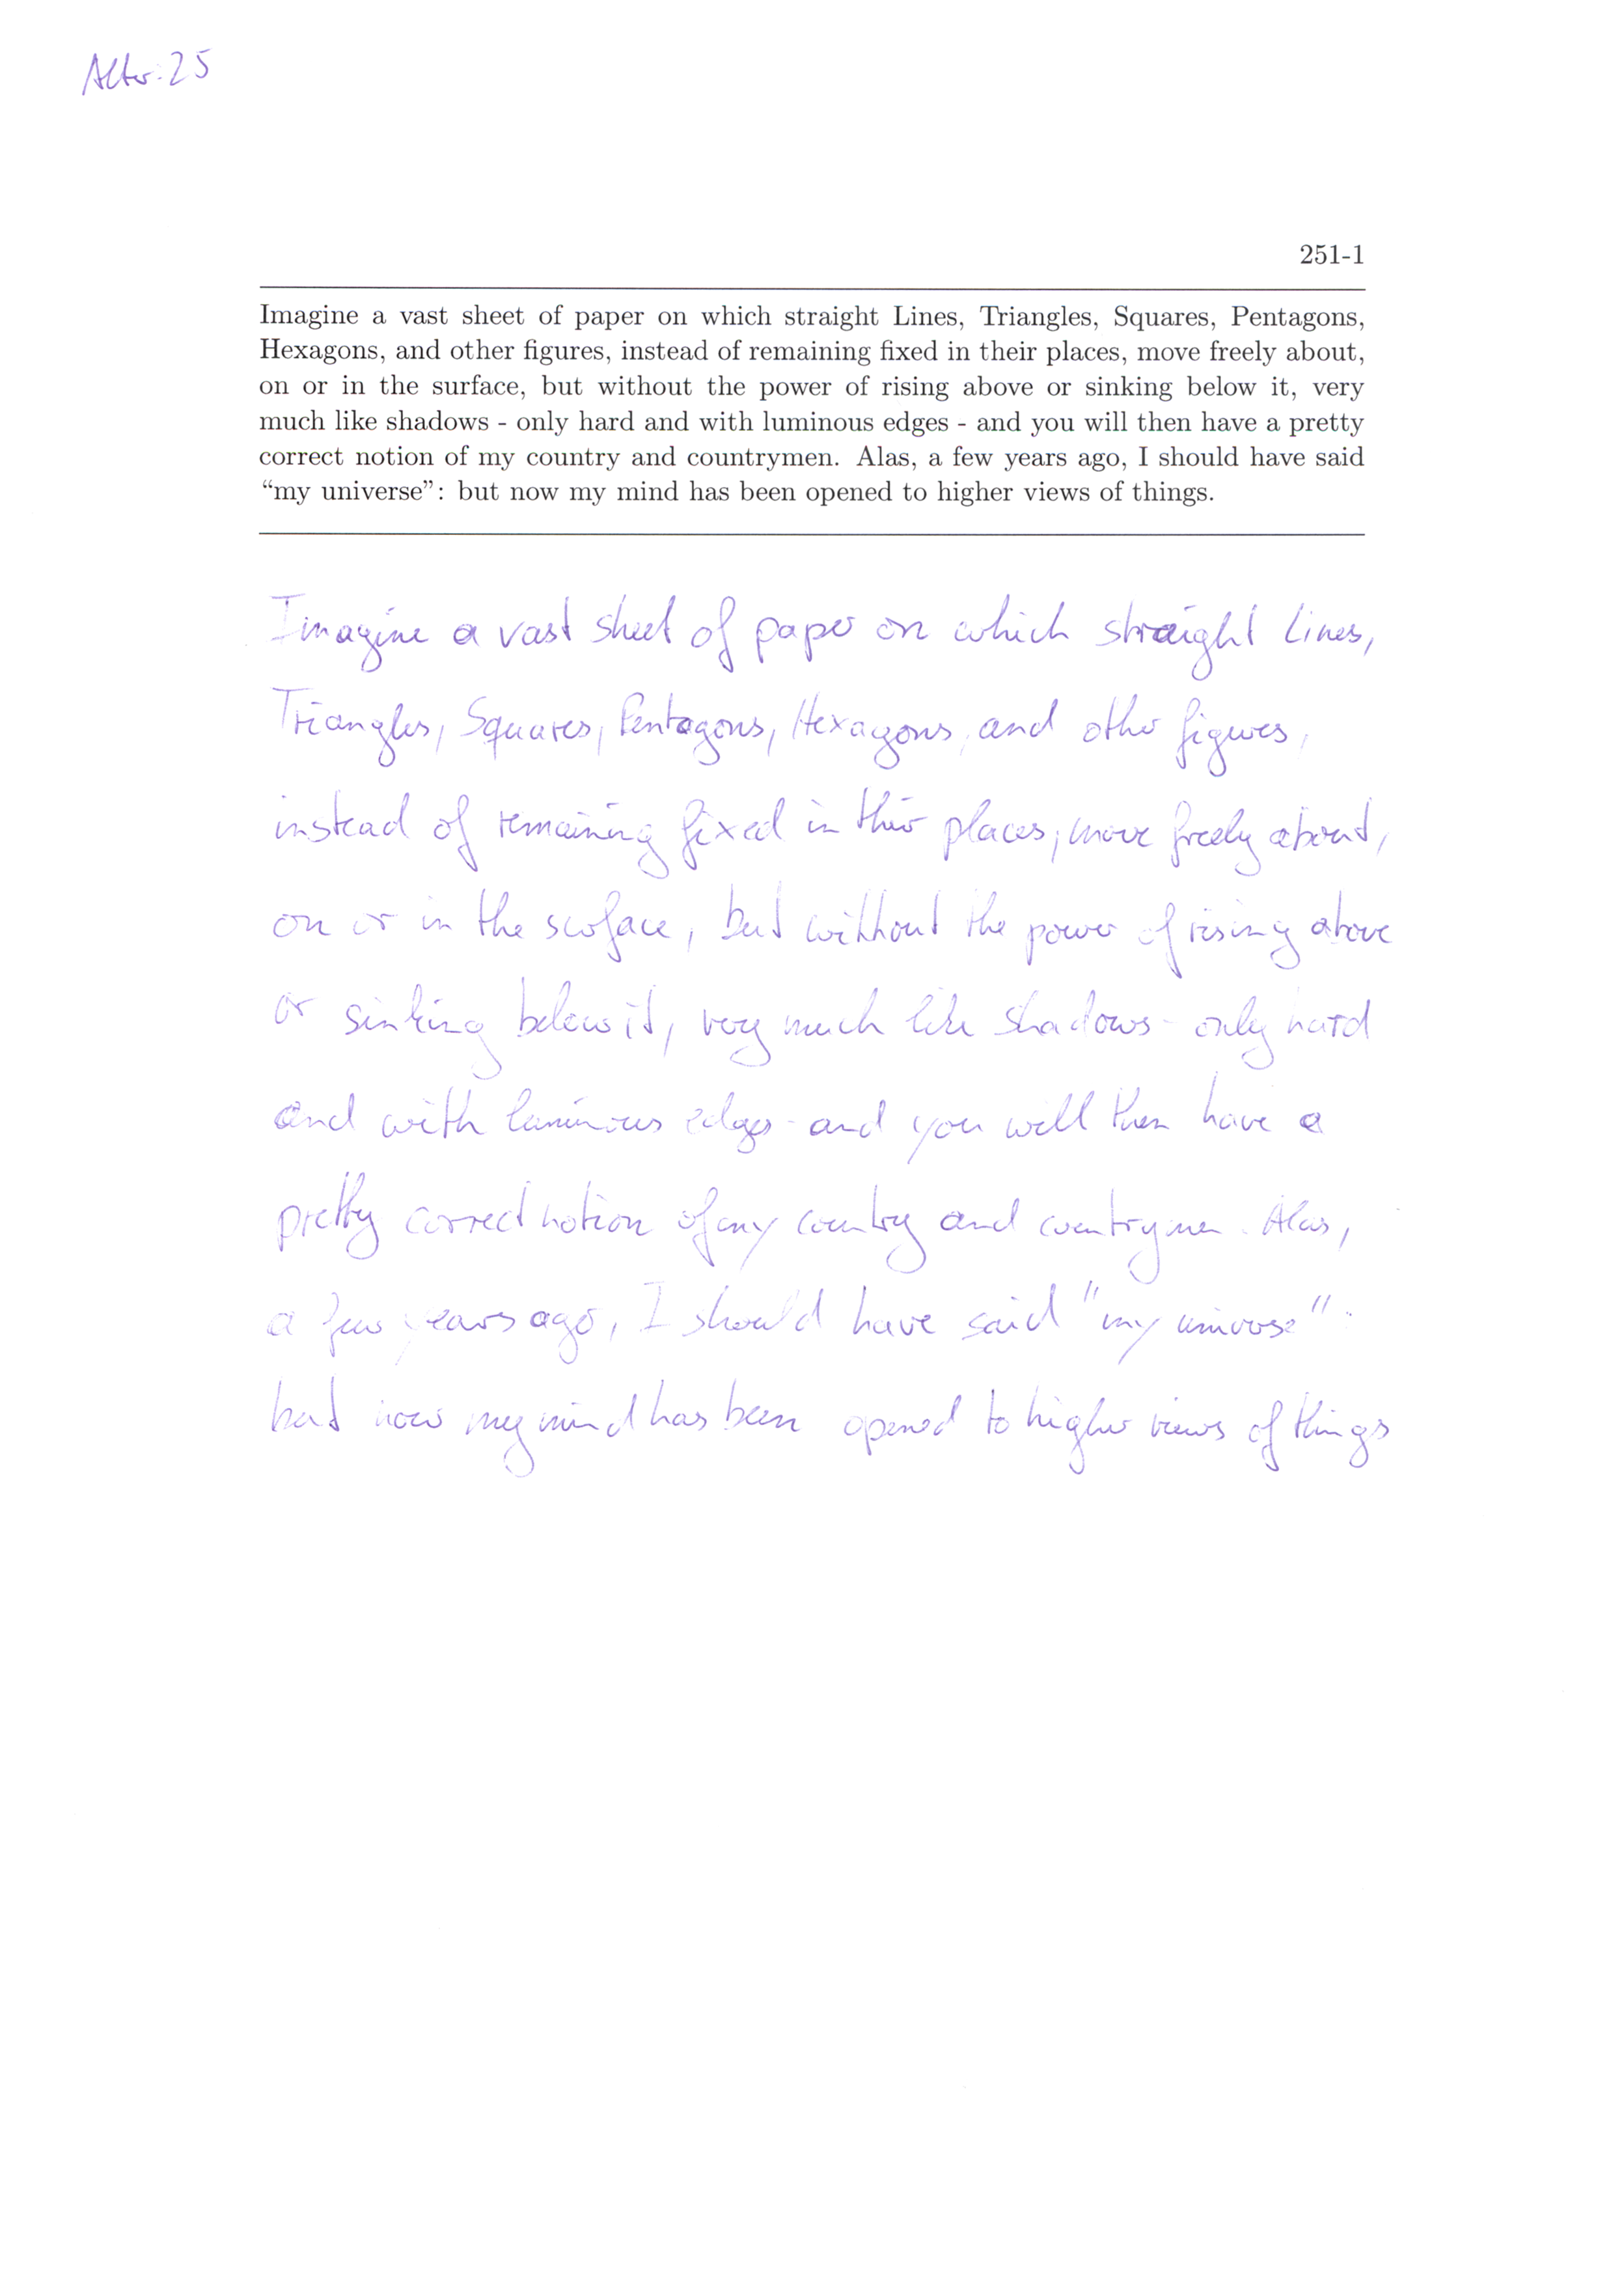 Alter: 25
251-1
Imagine a vast sheet of paper on which straight Lines, Triangles, Squares, Pentagons,
Hexagons, and other figures, instead of remaining fixed in their places, move freely about,
on or in the surface, but without the power of rising above or sinking below it, very
much like shadows - only hard and with luminous edges - and you will then have a pretty
correct notion of my country and countrymen. Alas, a few years ago, I should have said
“my universe”: but now my mind has been opened to higher views of things.
Imagine a vast sheet of paper on which straight Lines,
Triangles, Squares, Pentagons, Hexagons, and other figures,
instead of remaining fixed in their places, move freely about,
on or in the surface, but without the power of rising above
or sinking below it, very much like shadows - only hard
and with luminous edges - and you will then have a
pretty correct notion of my country and countrymen. Alas,
a few years ago, I should have said "my universe":
but now my mind has been opened to higher views of things